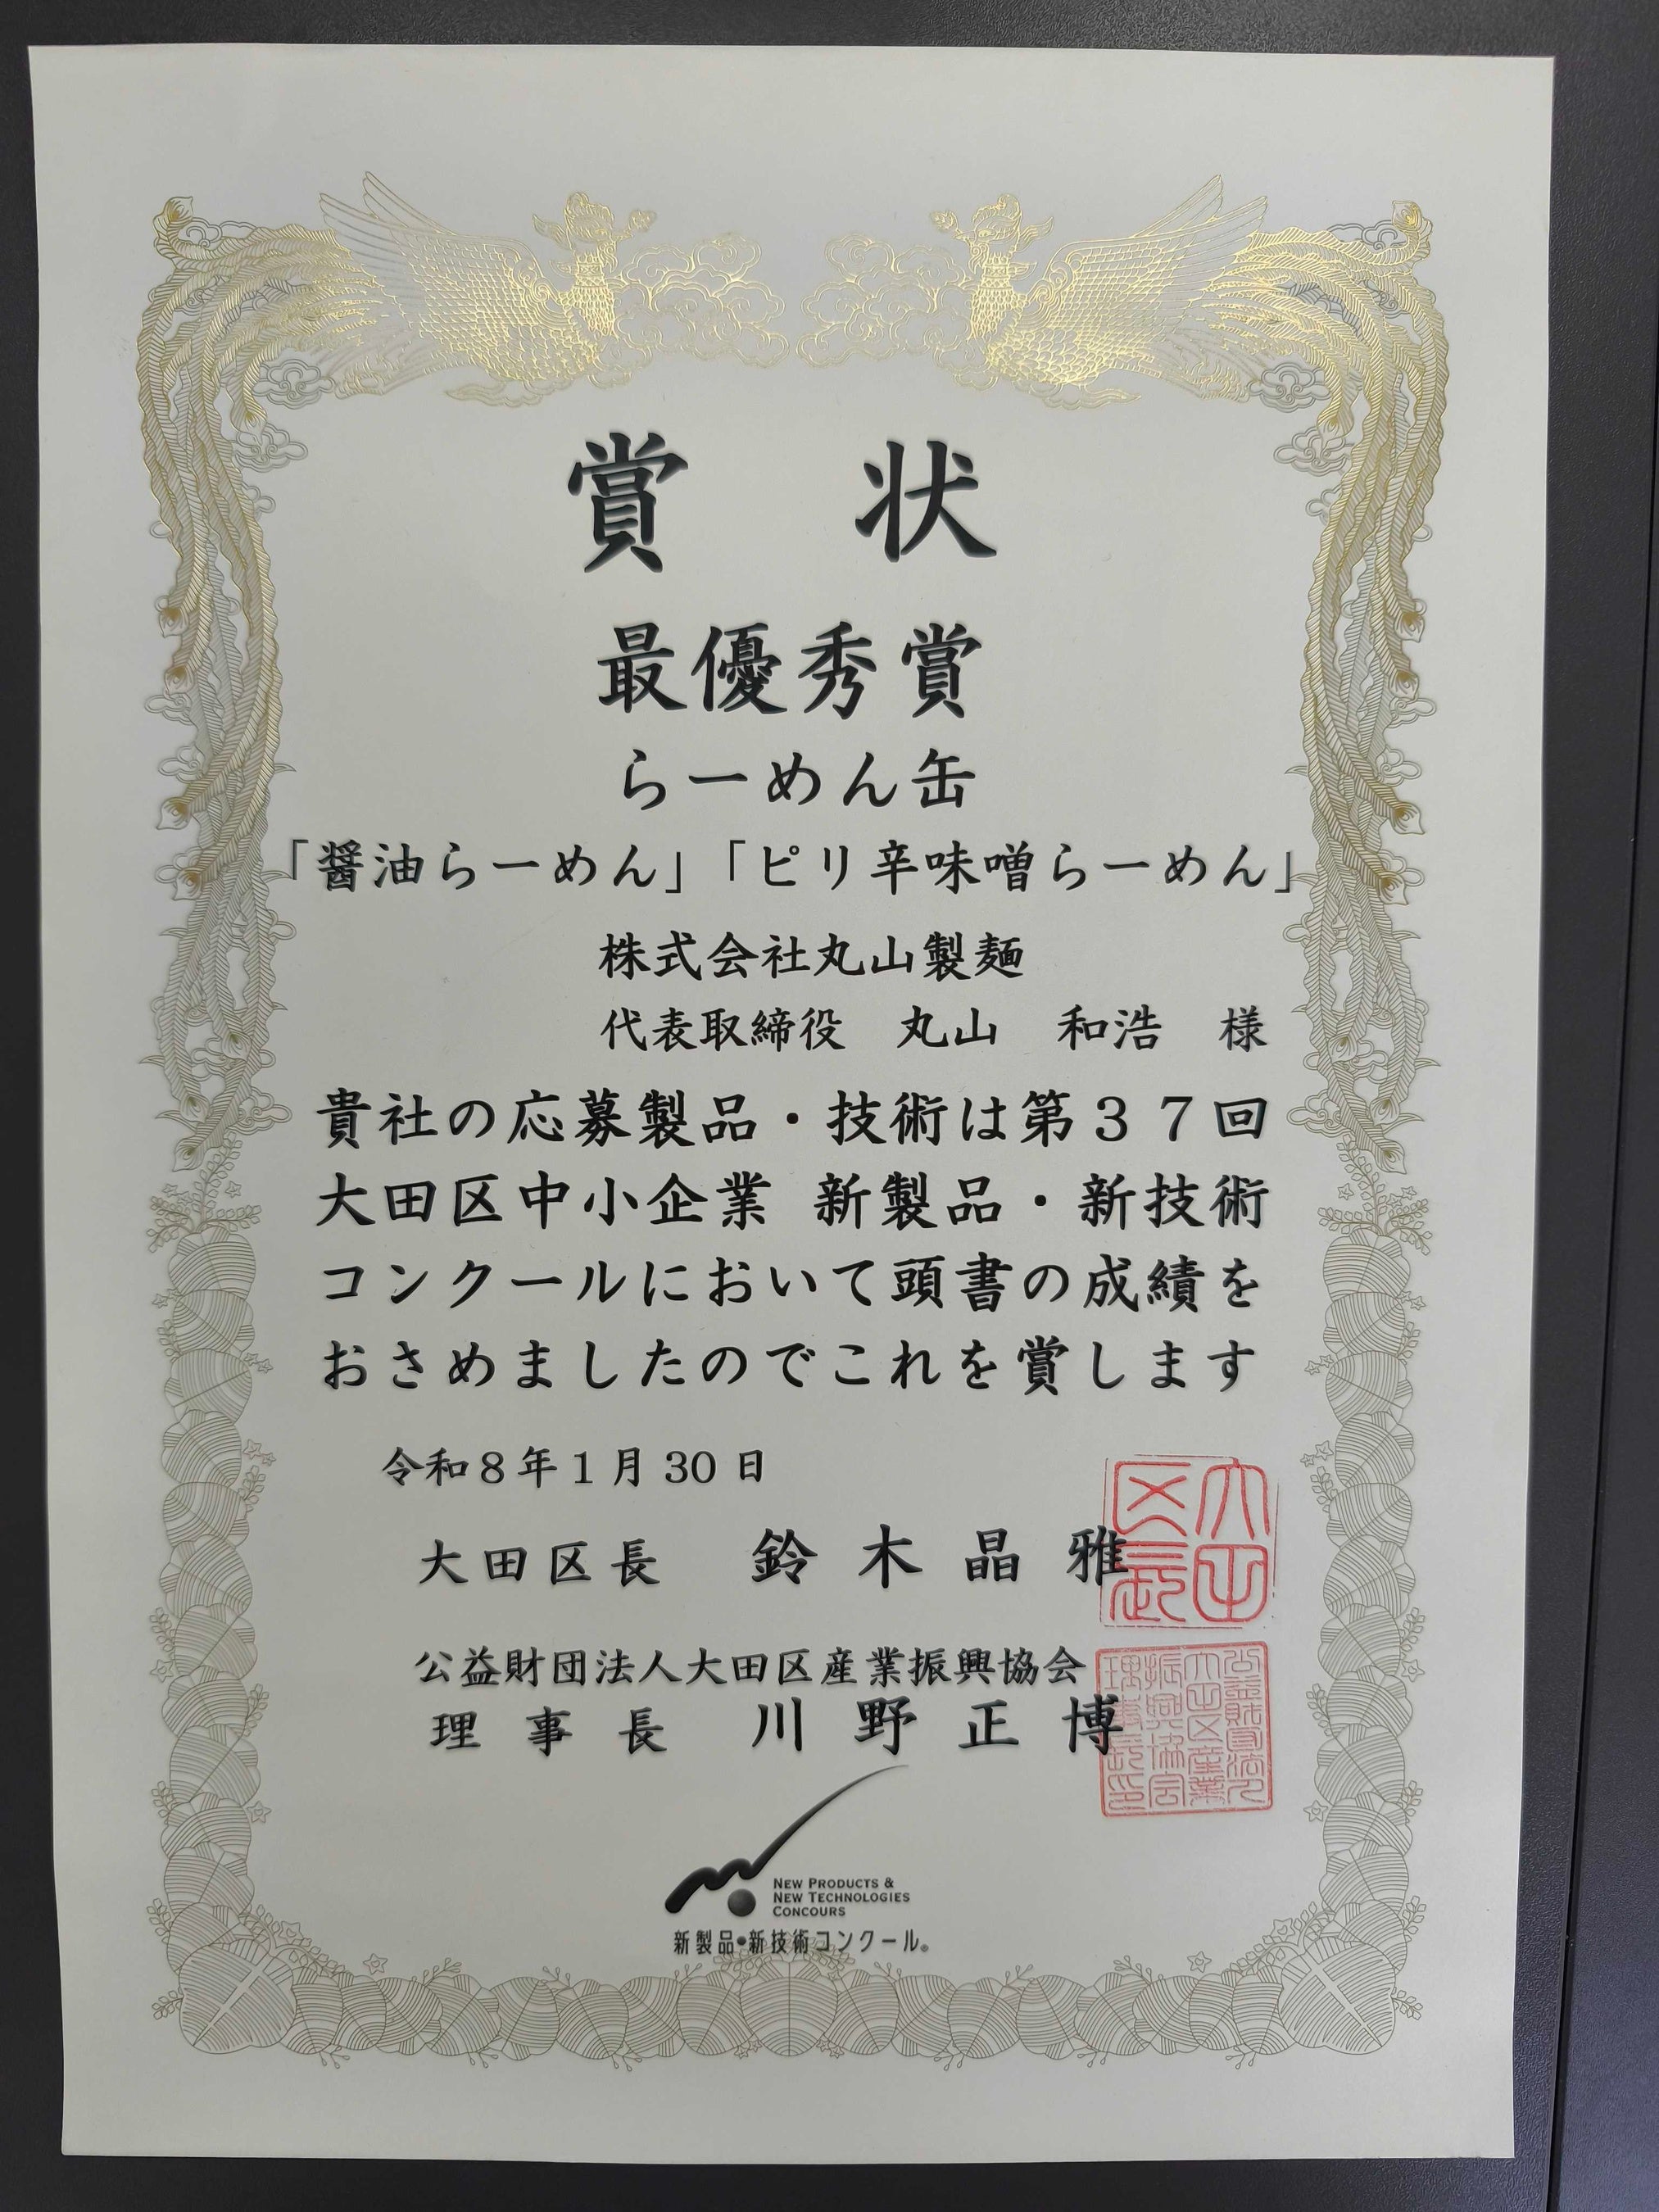 賞 状
最優秀賞
らーめん缶
「醤油らーめん」「ピリ辛味噌らーめん」
株式会社丸山製麺
代表取締役 丸山 和浩 様
貴社の応募製品・技術は第37回
大田区中小企業 新製品・新技術
コンクールにおいて頭書の成績を
おさめましたのでこれを賞します
令和8年1月30日
大田区長 鈴木晶雅
大田区長
公益財団法人大田区産業振興協会
理事長 川野正博
公益財団法人大田区産業振興協会理事長印
NEW PRODUCTS &
NEW TECHNOLOGIES
CONCOURS
新製品・新技術コンクール®